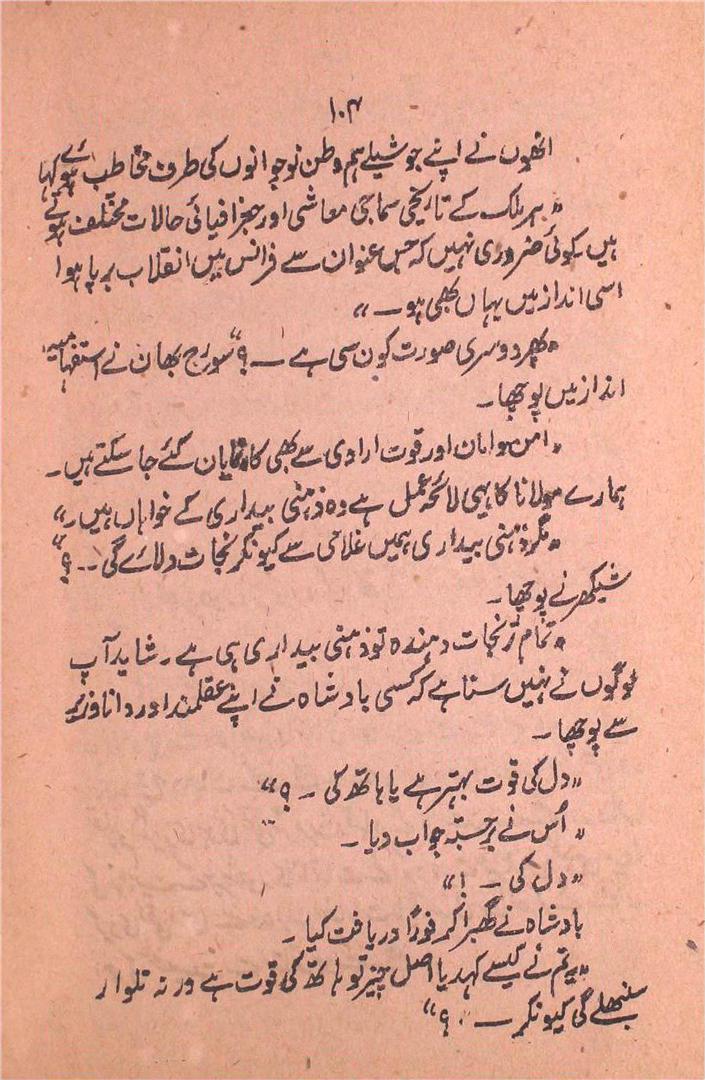 ۱۰۴
انھوں نے اپنے جوشیلے ہم وطن نوجوانوں کی طرف مخاطب ہوئے کہا
"ہر ملک کے تاریخی سماجی معاشی اور جغرافیائی حالات مختلف ہوتے
ہیں کوئی ضروری نہیں کہ جس عنوان سے فرانس میں انقلاب برپا ہوا
اسی انداز میں یہاں بھی ہو ــ"
"پھر دوسری صورت کون سی ہے ــ؟" سورج بھان نے استفہامیہ
انداز میں پوچھا۔
"امن و امان اور قوت ارادی سے بھی کام نمایاں کئے جا سکتے ہیں۔
ہمارے مولانا کا یہی لائحہ عمل ہے وہ ذہنی بیداری کے خواہاں ہیں۔"
"مگر ذہنی بیداری ہمیں غلامی سے کیونکر نجات دلائے گی ۔۔؟"
شیکھر نے پوچھا۔
"تمام تر نجات دہندہ تو ذہنی بیداری ہی ہے۔ شاید آپ
لوگوں نے نہیں سنا ہے کہ کسی بادشاہ نے اپنے عقلمند اور دانا وزیر
سے پوچھا۔
"دل کی قوت بہتر ہے یا ہاتھ کی ۔؟"
"اُس نے برجستہ جواب دیا۔"
"دل کی ۔!"
بادشاہ نے گھبرا کر فوراً دریافت کیا۔
"یہ تم نے کیسے کہدیا اصل چیز تو ہاتھ کی قوت ہے ورنہ تلوار
سنبھلے گی کیونکر ــ۔؟"